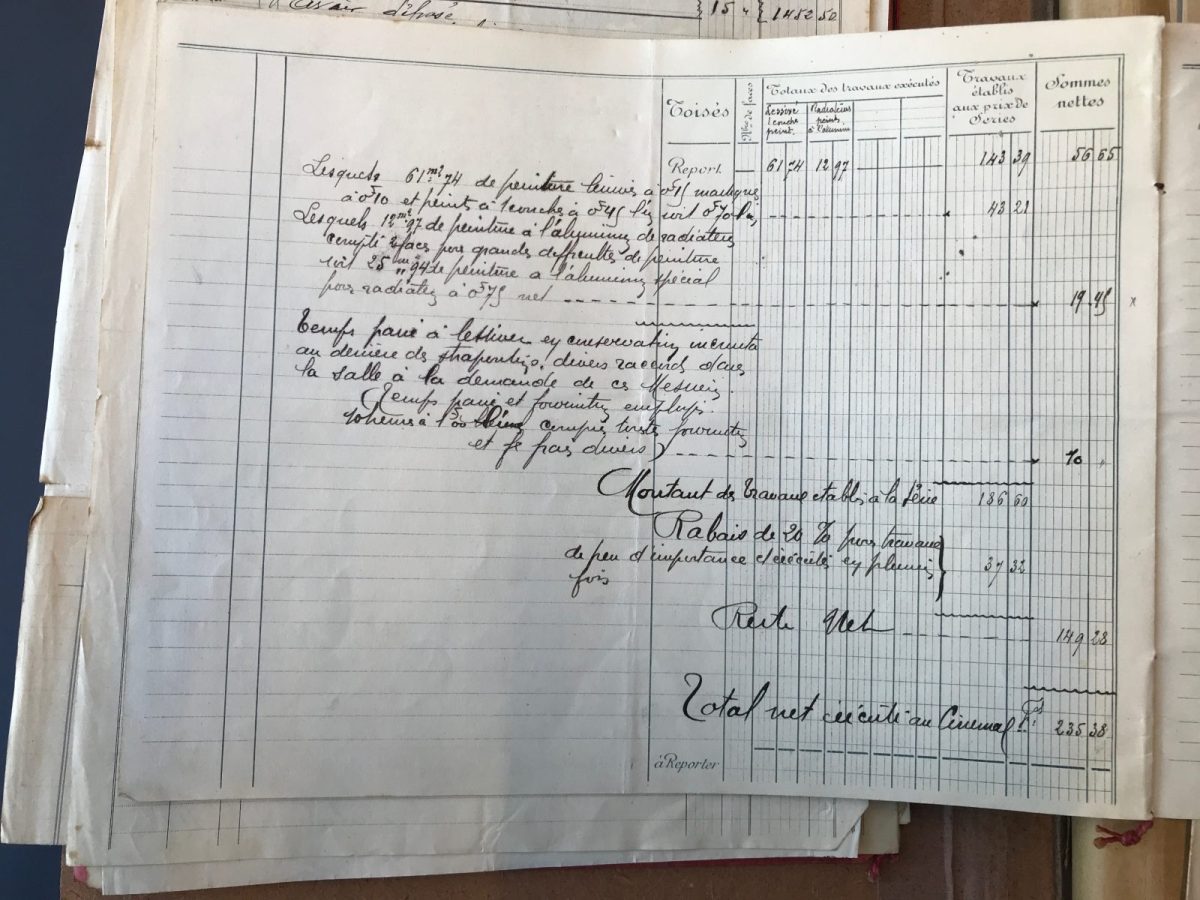 déposé 15 " 1452 50
Toisés
Nbre de faces
Totaux des travaux exécutés
Travaux
établis
aux prix de
Séries
Sommes
nettes
Lessivé
1 couche
peint.
Radiateurs
peints
à l'alumin
Report 61 74 12 97 143 39 56 65
Lesquels 61 m² 74 de peinture lessivés à 0f15 mastiqué
à 0f10 et peints à 1 couche à 0f45 l'un soit 0f70 43 21
Lesquels 12 m² 97 de peinture à l'aluminium de radiateurs
compté 2 faces pour grandes difficultés de peinture
soit 25 m 94 de peinture à l'aluminium spécial
pour radiateurs à 0f75 net 19 45 x
Temps passé à lessiver en conservation
au derrière des strapontins, divers raccords dans
la salle à la demande de ces Messieurs.
Temps passé et fournitures employés.
10 heures à 1f00 compris toutes fournitures
et frais divers 10 "
Montant des travaux établis à la Série 186 60
Rabais de 20 % pour travaux
de peu d'importance et exécutés en plusieurs
fois 37 32
Reste Net 149 28
Total net exécuté au Cinéma 235 38
à Reporter